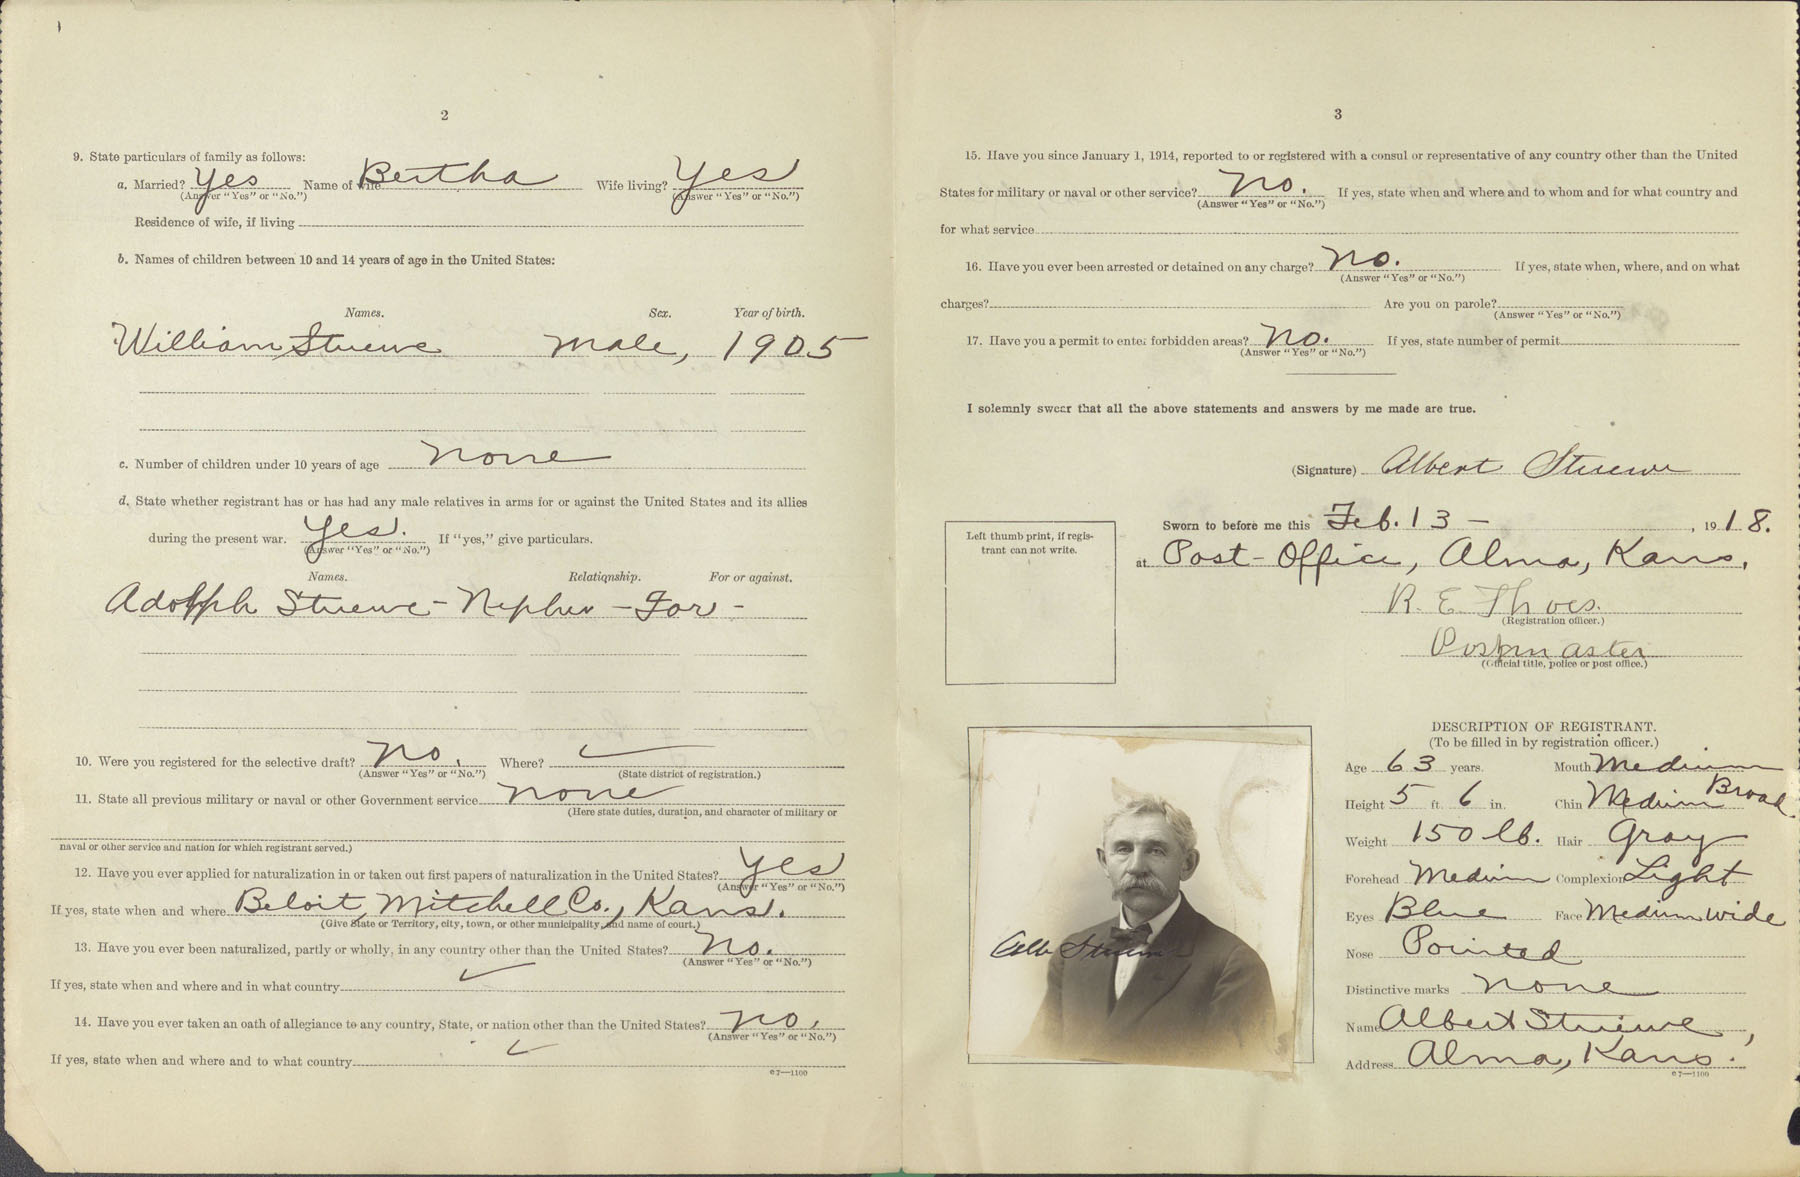 2
9. State particulars of family as follows:
a. Married? Yes Name of wife Bertha Wife living? Yes
(Answer "Yes" or "No.") (Answer "Yes" or "No.")
Residence of wife, if living
b. Names of children between 10 and 14 years of age in the United States:
Names. Sex. Year of birth.
William Stuewe Male, 1905
c. Number of children under 10 years of age None
d. State whether registrant has or has had any male relatives in arms for or against the United States and its allies
during the present war. Yes. If "yes," give particulars.
(Answer "Yes" or "No.")
Names. Relationship. For or against.
Adolph Stuewe - Nephew - For -
10. Were you registered for the selective draft? No. Where?
(Answer "Yes" or "No.") (State district of registration.)
11. State all previous military or naval or other Government service None
(Here state duties, duration, and character of military or
naval or other service and nation for which registrant served.)
12. Have you ever applied for naturalization in or taken out first papers of naturalization in the United States? Yes
(Answer "Yes" or "No.")
If yes, state when and where Beloit, Mitchell Co., Kans.
(Give State or Territory, city, town, or other municipality, and name of court.)
13. Have you ever been naturalized, partly or wholly, in any country other than the United States? No.
(Answer "Yes" or "No.")
If yes, state when and where and in what country
14. Have you ever taken an oath of allegiance to any country, State, or nation other than the United States? No.
(Answer "Yes" or "No.")
If yes, state when and where and to what country
c7—1100
3
15. Have you since January 1, 1914, reported to or registered with a consul or representative of any country other than the United
States for military or naval or other service? No. If yes, state when and where and to whom and for what country and
(Answer "Yes" or "No.")
for what service
16. Have you ever been arrested or detained on any charge? No. If yes, state when, where, and on what
(Answer "Yes" or "No.")
charges? Are you on parole?
(Answer "Yes" or "No.")
17. Have you a permit to enter forbidden areas? No. If yes, state number of permit
(Answer "Yes" or "No.")
I solemnly swear that all the above statements and answers by me made are true.
(Signature) Albert Stuewe
Sworn to before me this Feb. 13 - , 1918.
at Post-Office, Alma, Kans.
R. E. Thoes.
(Registration officer.)
Postmaster
(Official title, police or post office.)
Left thumb print, if regis-
trant can not write.
DESCRIPTION OF REGISTRANT.
(To be filled in by registration officer.)
Age 63 years. Mouth Medium
Height 5 ft. 6 in. Chin Medium Broad
Weight 150 lb. Hair Gray
Forehead Medium Complexion Light
Eyes Blue Face Medium wide
Nose Pointed
Distinctive marks None
Name Albert Stuewe,
Address Alma, Kans.
c7—1100
Stuewe